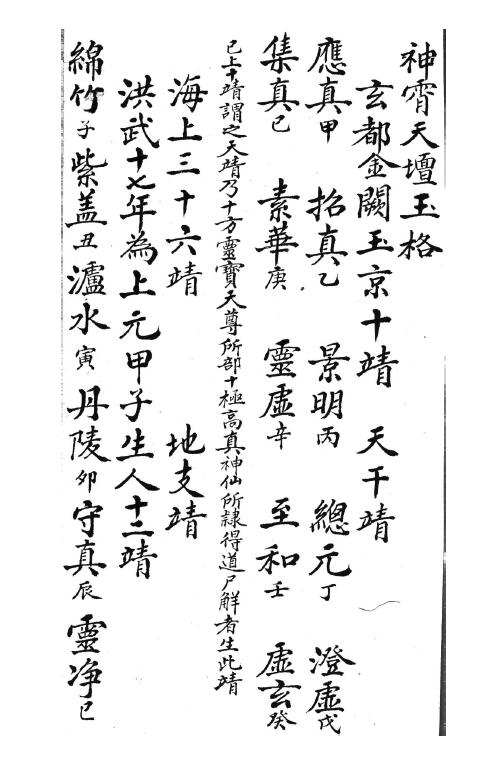 神霄天壇玉格
玄都金闕玉京十靖　天干靖
應真甲　招真乙　景明丙　總元丁　澄虛戊
集真己　素華庚　靈虛辛　至和壬　虛玄癸
已上十靖謂之天靖乃十方靈寶天尊所部十極高真神仙所隸得道尸解者生此靖
海上三十六靖　地支靖
洪武十七年為上元甲子生人十二靖
綿竹子　紫盖丑　瀘水寅　丹陵卯　守真辰　靈净巳